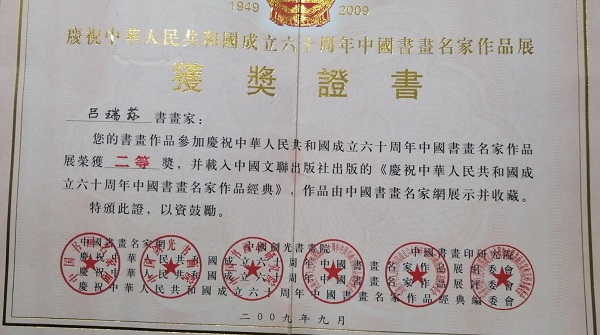 1949 2009
慶祝中華人民共和國成立六十周年中國書畫名家作品展
獲獎證書
呂瑞芬 書畫家：
您的書畫作品參加慶祝中華人民共和國成立六十周年中國書畫名家作品
展榮獲 二等 獎，并載入中國文聯出版社出版的《慶祝中華人民共和國成
立六十周年中國書畫名家作品經典》，作品由中國書畫名家網展示并收藏。
特頒此證，以資鼓勵。
中國書畫名家網 中國劍光書畫院 中國書畫印研究院
慶祝中華人民共和國成立六十周年中國書畫名家作品展組委會
慶祝中華人民共和國成立六十周年中國書畫名家作品展評委會
慶祝中華人民共和國成立六十周年中國書畫名家作品經典編委會
二00九年九月